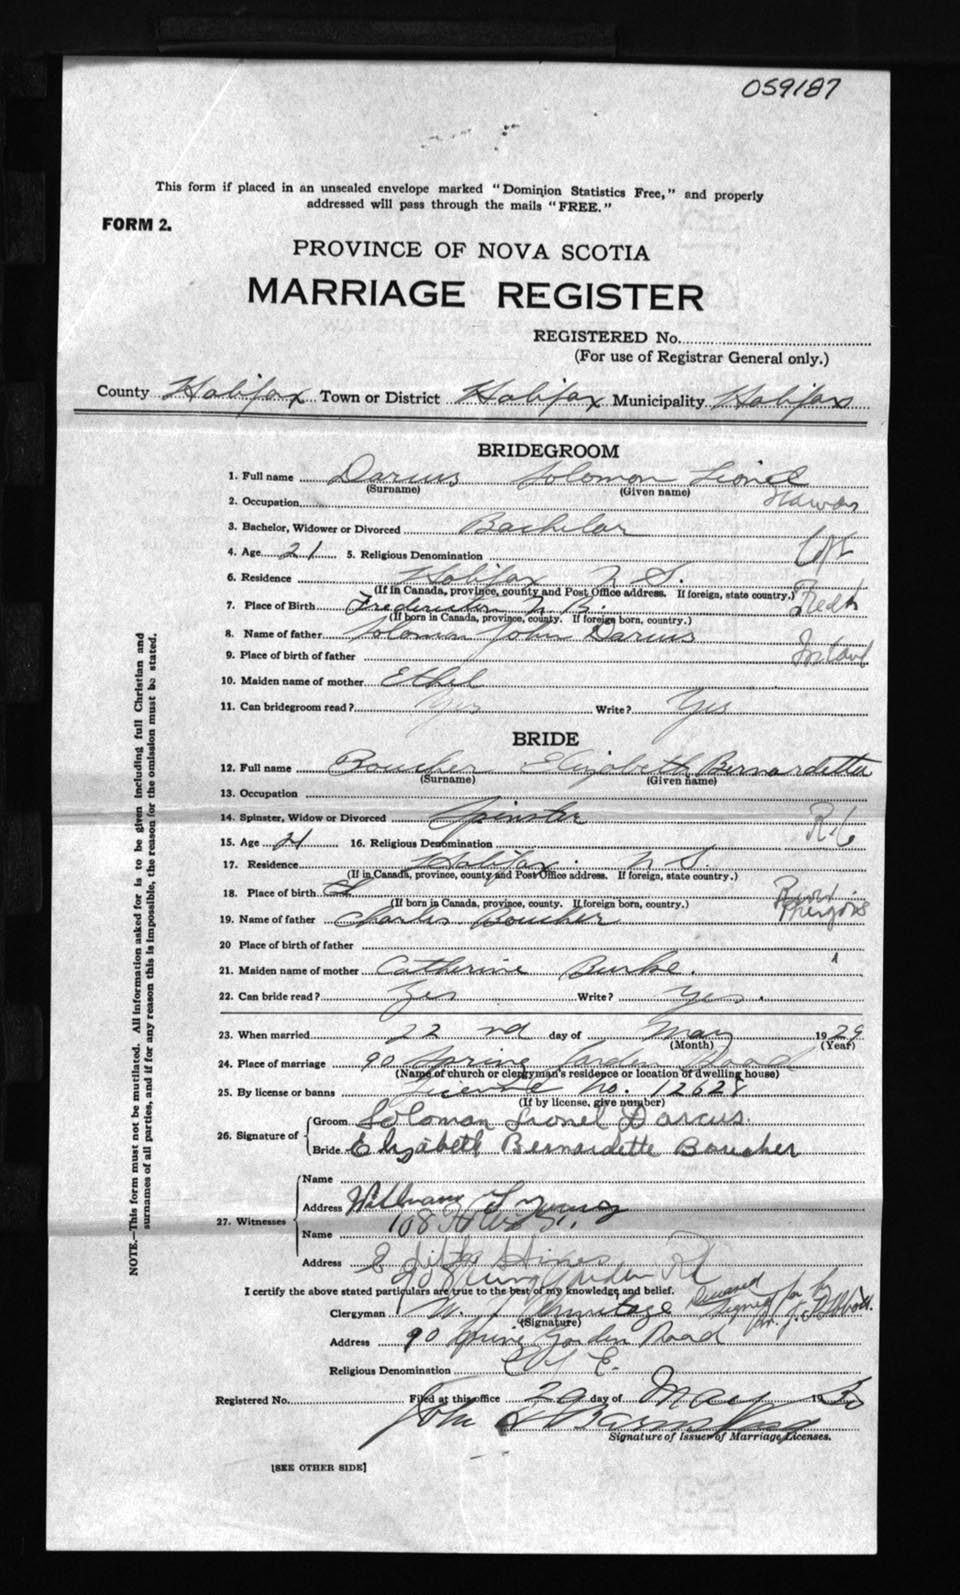 059187
This form if placed in an unsealed envelope marked "Dominion Statistics Free," and properly
addressed will pass through the mails "FREE."
FORM 2.
PROVINCE OF NOVA SCOTIA
MARRIAGE REGISTER
REGISTERED No.
(For use of Registrar General only.)
County Halifax Town or District Halifax Municipality Halifax
BRIDEGROOM
1. Full name Darcus Solomon Lionel
(Surname) (Given name)
2. Occupation
3. Bachelor, Widower or Divorced Bachelor
4. Age 21 5. Religious Denomination C of E
6. Residence Halifax N. S.
(If in Canada, province, county and Post Office address. If foreign, state country.)
7. Place of Birth Fredericton N. B.
(If born in Canada, province, county. If foreign born, country.)
8. Name of father Solomon John Darcus
9. Place of birth of father
10. Maiden name of mother Ethel
11. Can bridegroom read? Yes Write? Yes
BRIDE
12. Full name Boucher Elizabeth Bernardetta
(Surname) (Given name)
13. Occupation
14. Spinster, Widow or Divorced Spinster
15. Age 21 16. Religious Denomination
17. Residence Halifax N. S.
(If in Canada, province, county and Post Office address. If foreign, state country.)
18. Place of birth
(If born in Canada, province, county. If foreign born, country.)
19. Name of father Charles Boucher
20 Place of birth of father
21. Maiden name of mother Catherine Burke.
22. Can bride read? Yes Write? Yes.
23. When married 22nd day of May 1929
(Month) (Year)
24. Place of marriage 90 Spring Garden Road
(Name of church or clergyman's residence or location of dwelling house)
25. By license or banns License No. 12628
(If by license, give number)
26. Signature of Groom Solomon Lionel Darcus.
Bride Elizabeth Bernardette Boucher
27. Witnesses
Name
Address William Young
Name 108
Address Edith Hines
90 Spring Garden Rd
I certify the above stated particulars are true to the best of my knowledge and belief.
Deceased
Signed for by
Clergyman W. J. Armitage
(Signature)
Address 90 Spring Garden Road
Religious Denomination C of E.
Registered No. Filed at this office 29 day of May 19
John
Signature of Issuer of Marriage Licenses.
[SEE OTHER SIDE]
NOTE.—This form must not be mutilated. All information asked for is to be given including full Christian and
surnames of all parties, and if for any reason this is impossible, the reason for the omission must be stated.